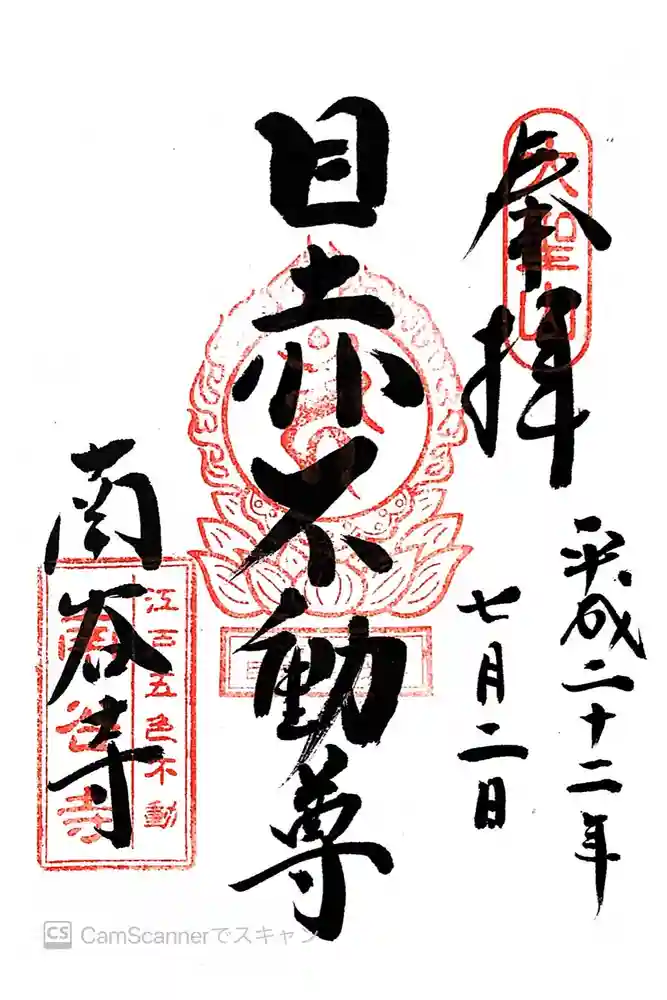 奉拝
大聖山
平成二十二年
七月二日
目赤不動尊
南谷寺
江戸五色不動
南谷寺
CamScannerでスキャン